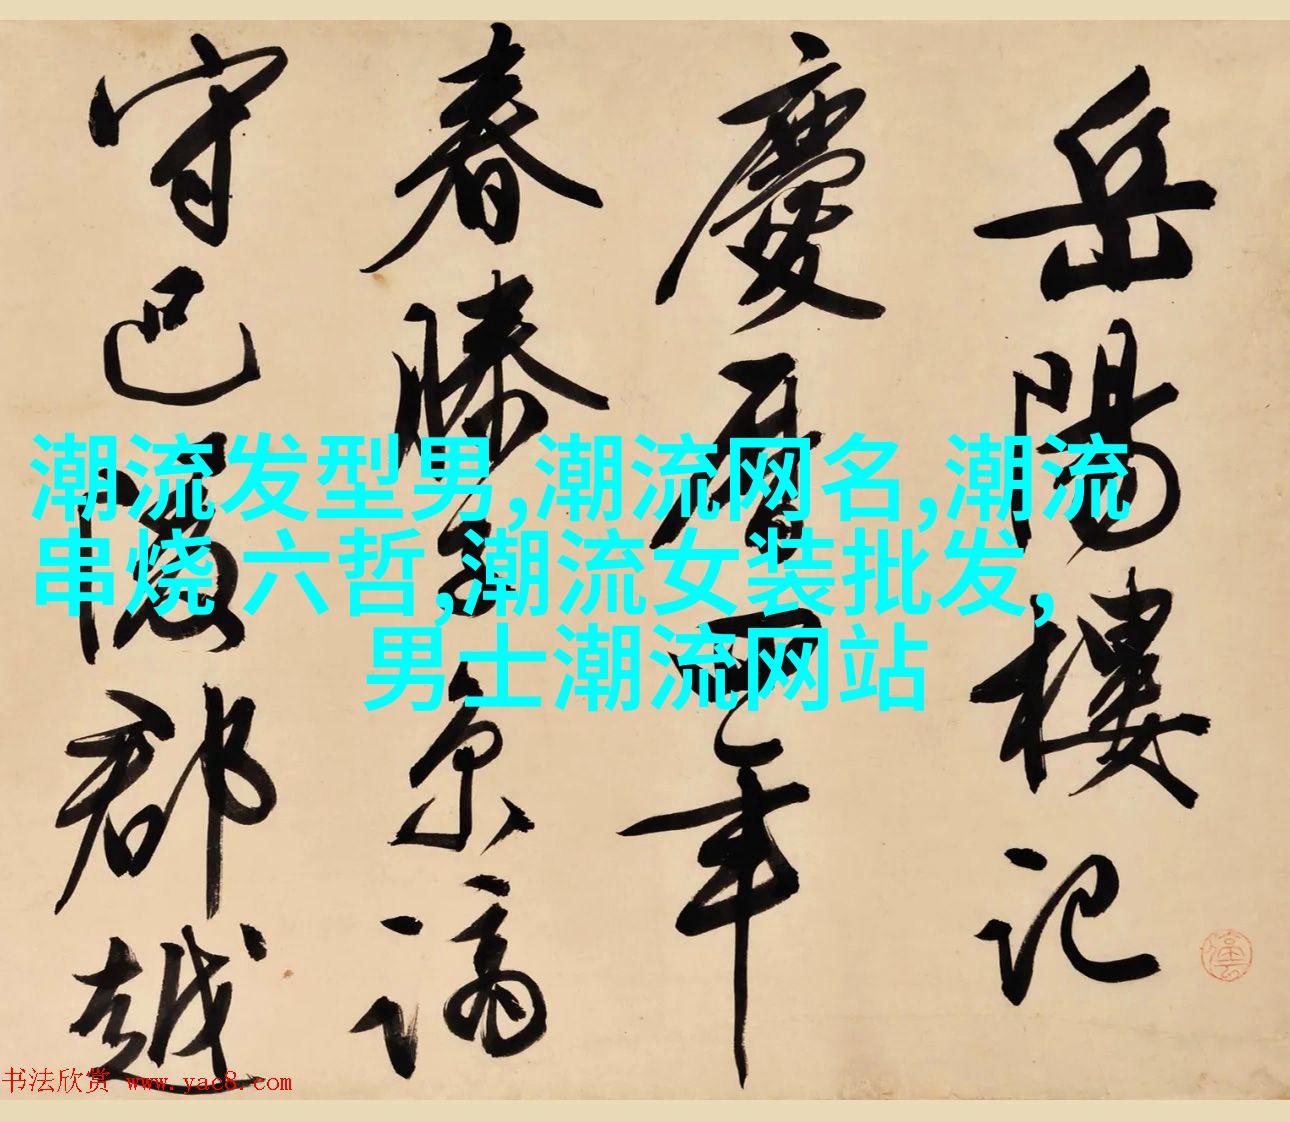 岳陽樓記
慶曆四年
春滕子京謫
守巴陵郡越
潮流发型男,潮流网名,潮流
串烧 六哲,潮流女装批发,
男士潮流网站
书法欣赏 www.yac8.com